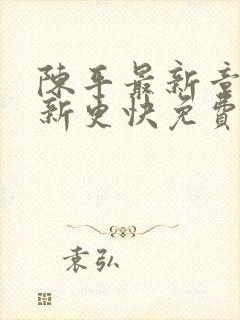 陳平最新章
新更快免費
袁弘